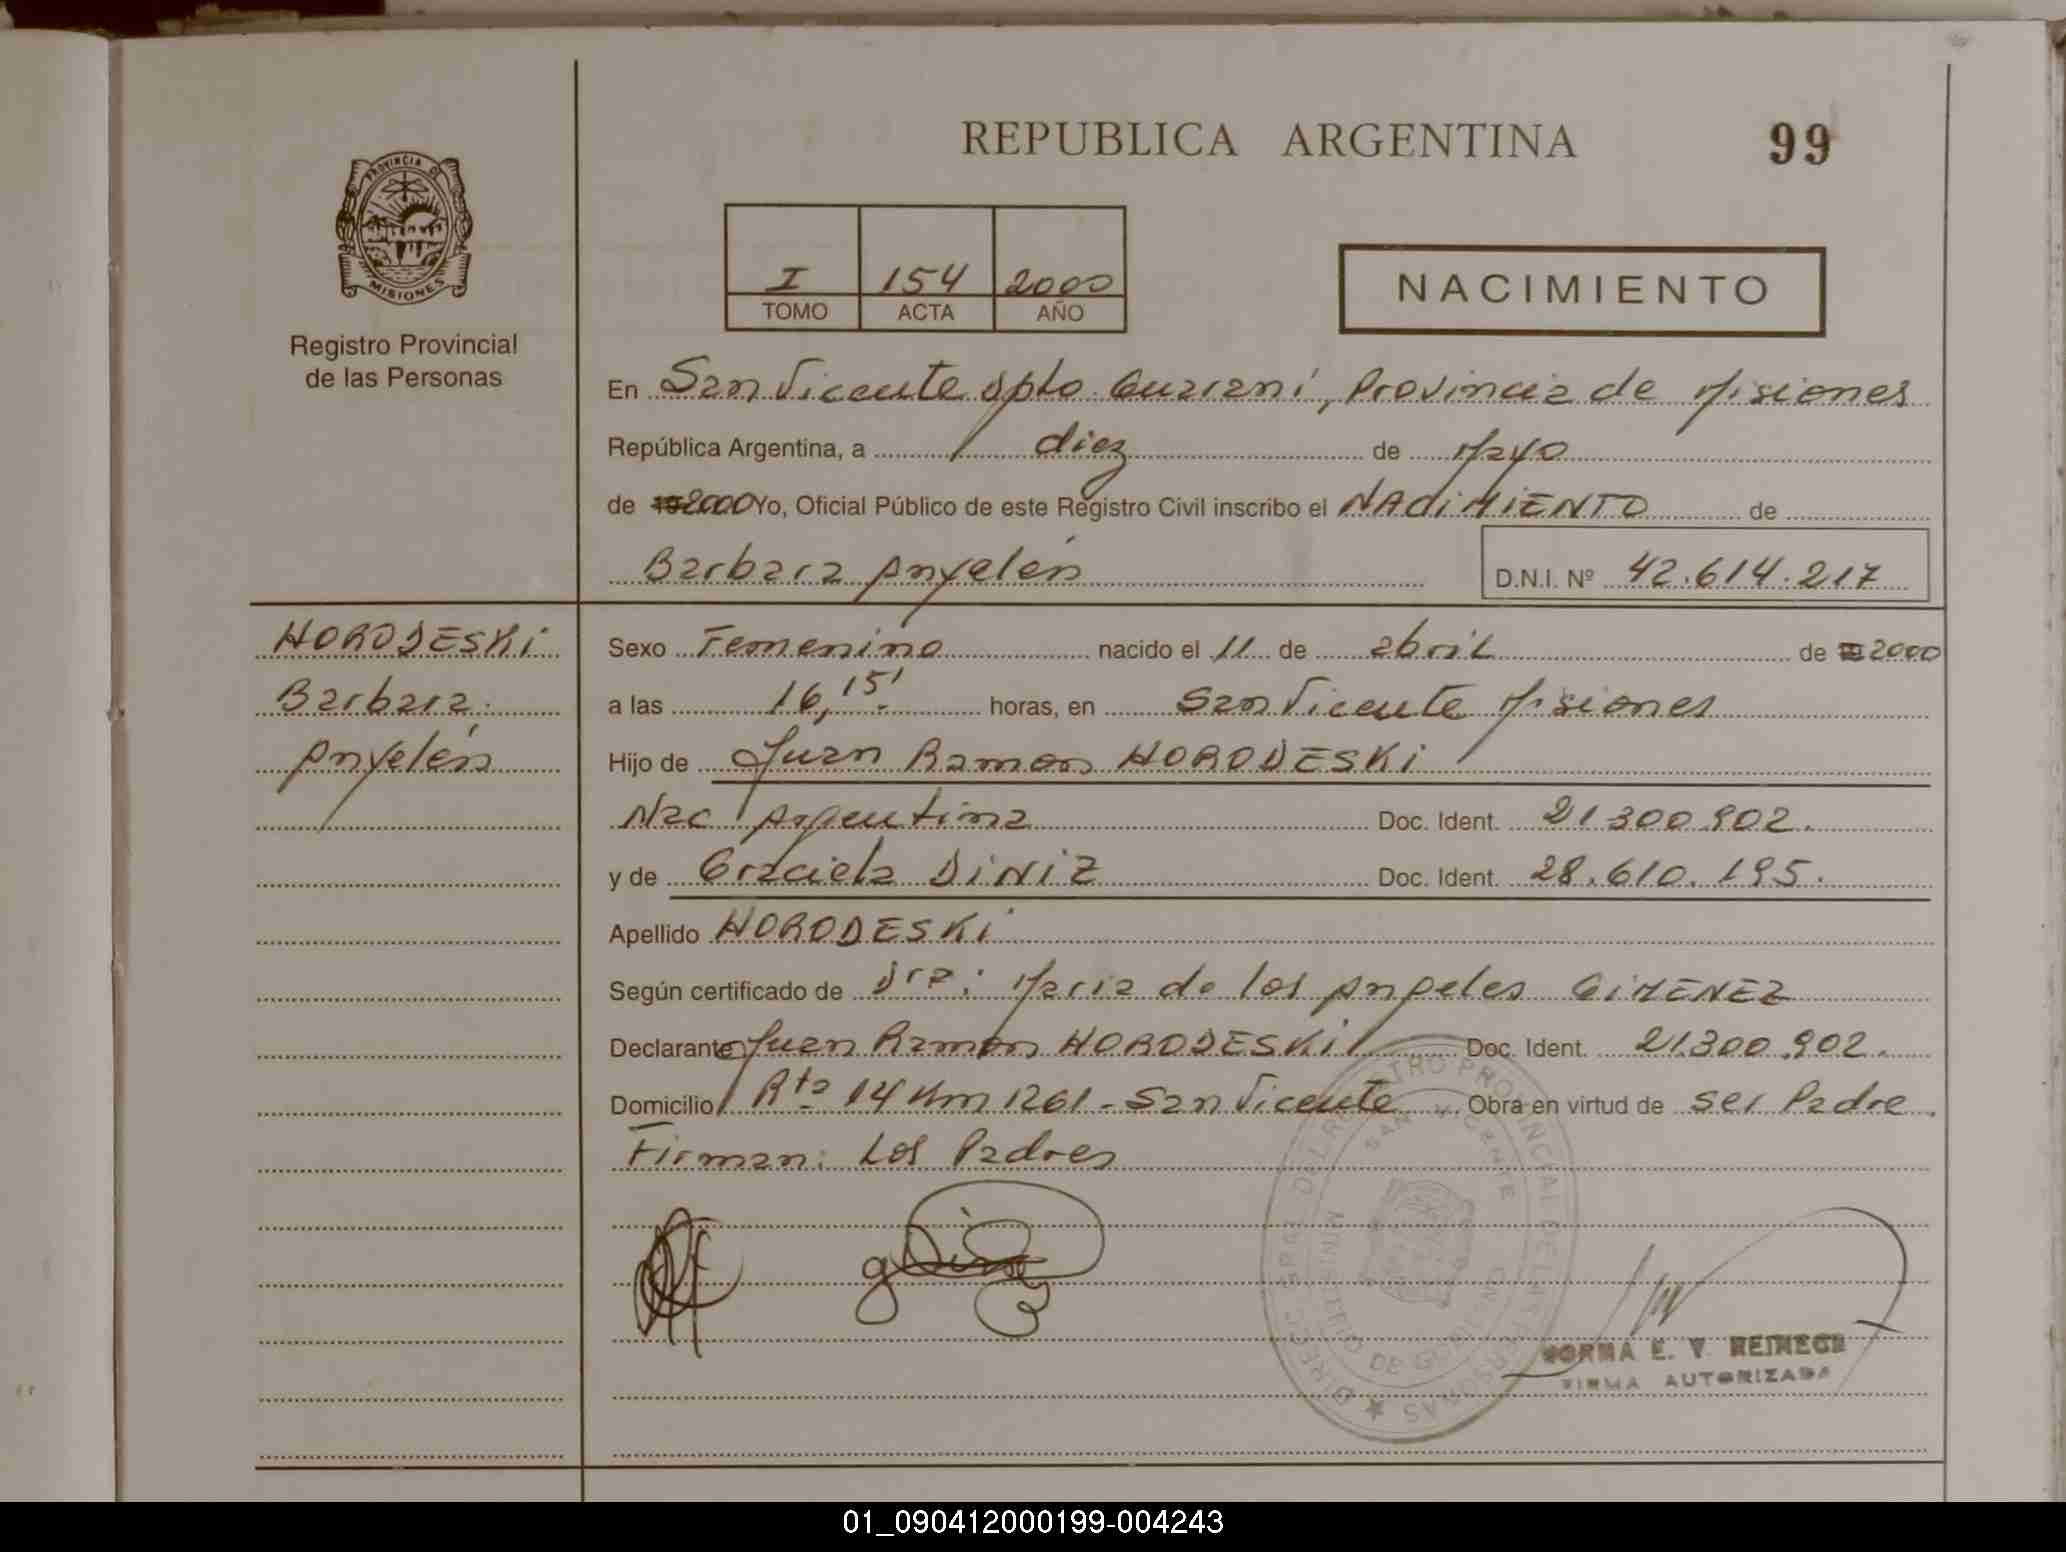 REPUBLICA ARGENTINA
99
PROVINCIA DE
MISIONES
Registro Provincial
de las Personas
I 154 2000
TOMO ACTA AÑO
NACIMIENTO
En San Vicente Dpto. Guaraní, Provincia de Misiones
República Argentina, a diez de Mayo
de 19 2000 Yo, Oficial Público de este Registro Civil inscribo el NACiMiENTO de
Barbara Anyelén D.N.I. Nº 42.614.217
HORODESKi
Barbara
Anyelén
Sexo Femenino nacido el 11 de abril de 2000
a las 16,15' horas, en San Vicente Misiones
Hijo de Juan Ramon HORODESKi
Nac Argentina Doc. Ident. 21.300.902.
y de Graciela DiNiZ Doc. Ident. 28.610.195.
Apellido HORODESKi
Según certificado de Dra: Maria de los Angeles GiMENEZ
Declarante Juan Ramon HORODESKi Doc. Ident. 21.300.902.
Domicilio Rta 14 Km 1261 - San Vicente Obra en virtud de ser Padre.
Firman: Los Padres
SAN VICENTE
MINISTERIO DE GOBIERNO
NORMA E. V. REINECK
FIRMA AUTORIZADA
01_090412000199-004243